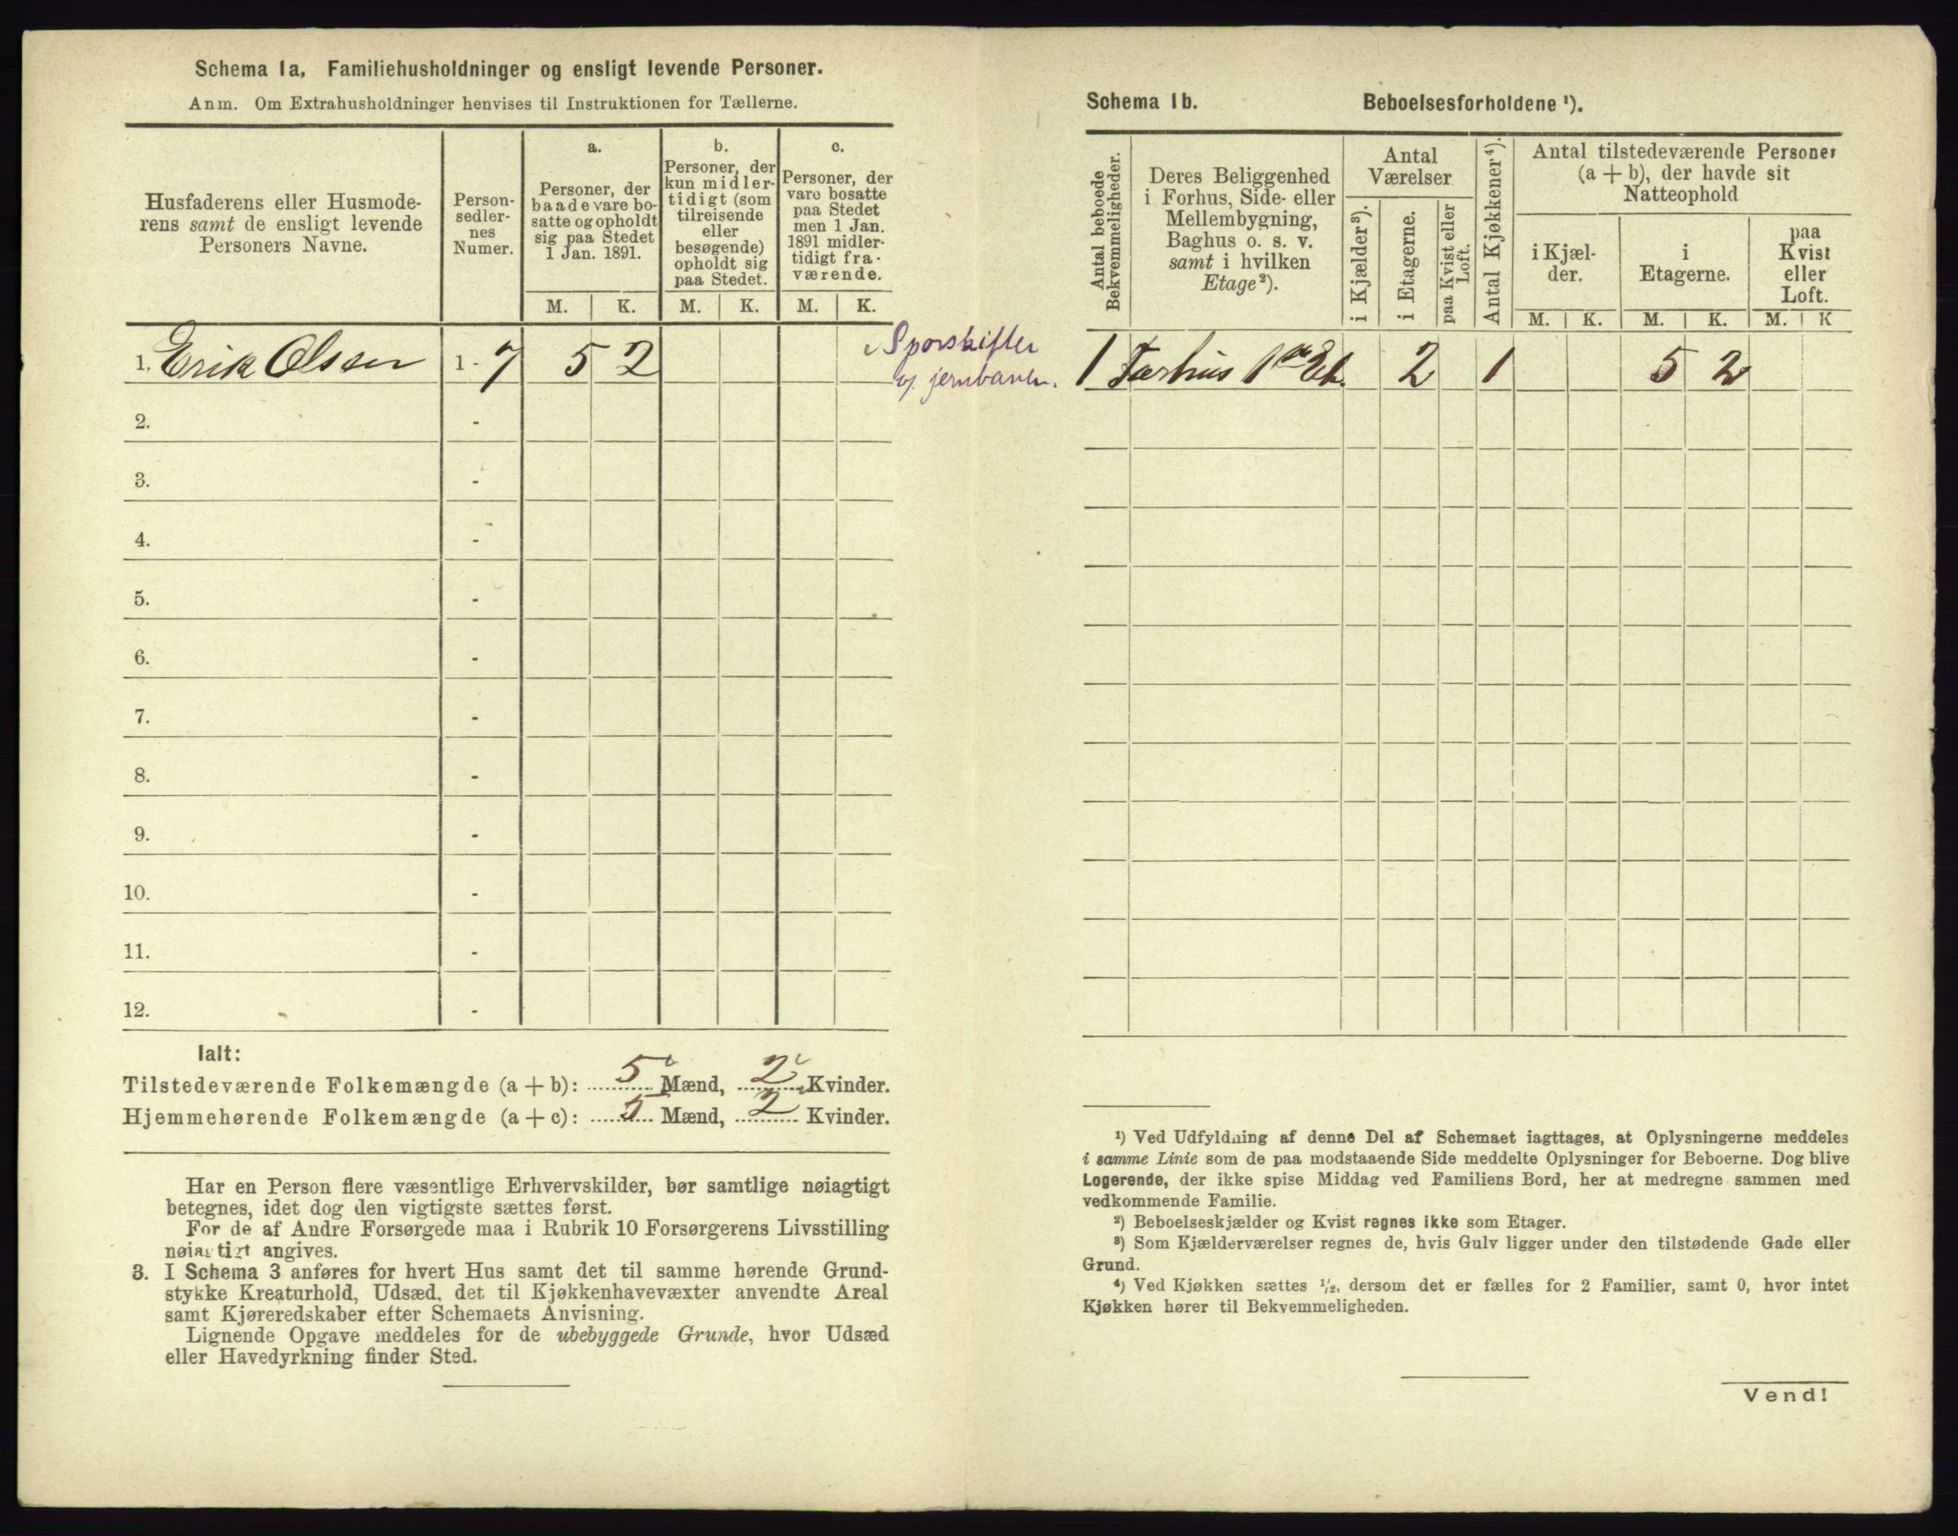 Schema 1a, Familiehusholdninger og ensligt levende Personer.
Anm. Om Extrahusholdninger henvises til Instruktionen for Tællerne.
Husfaderens eller Husmode-
rens samt de ensligt levende
Personers Navne.
Person-
sedler-
nes
Numer.
a.
Personer, der
baade vare bo-
satte og opholdt
sig paa Stedet
1 Jan. 1891.
b.
Personer, der
kun midler-
tidigt (som
tilreisende
eller
besøgende)
opholdt sig
paa Stedet.
c.
Personer, der
vare bosatte
paa Stedet
men 1 Jan.
1891 midler-
tidigt fra-
værende.
M. K. M. K. M. K.
1. Erik Olsen 1 - 7 5 2
Sporskifter
v/ jernbanen.
2. -
3. -
4. -
5. -
6. -
7. -
8. -
9. -
10. -
11. -
12. -
Ialt:
Tilstedeværende Folkemængde (a + b): 5 Mænd, 2 Kvinder.
Hjemmehørende Folkemængde (a + c): 5 Mænd, 2 Kvinder.
Har en Person flere væsentlige Erhvervskilder, bør samtlige nøiagtigt
betegnes, idet dog den vigtigste sættes først.
For de af Andre Forsørgede maa i Rubrik 10 Forsørgerens Livsstilling
nøiagtigt angives.
3. I Schema 3 anføres for hvert Hus samt det til samme hørende Grund-
stykke Kreaturhold, Udsæd, det til Kjøkkenhavevæxter anvendte Areal
samt Kjøreredskaber efter Schemaets Anvisning.
Lignende Opgave meddeles for de ubebyggede Grunde, hvor Udsæd
eller Havedyrkning finder Sted.
Schema 1b. Beboelsesforholdene ¹).
Antal beboede
Bekvemmeligheder.
Deres Beliggenhed
i Forhus, Side- eller
Mellembygning,
Baghus o. s. v.
samt i hvilken
Etage ²).
Antal
Værelser
i Kjælder ³).
i Etagerne.
paa Kvist eller
Loft.
Antal Kjøkkener ⁴).
Antal tilstedeværende Personer
(a + b), der havde sit
Natteophold
i Kjæl-
der.
i
Etagerne.
paa
Kvist
eller
Loft.
M. K. M. K. M. K
1 Forhus 1ste Et. 2 1 5 2
¹) Ved Udfyldning af denne Del af Schemaet iagttages, at Oplysningerne meddeles
i samme Linie som de paa modstaaende Side meddelte Oplysninger for Beboerne. Dog blive
Logerende, der ikke spise Middag ved Familiens Bord, her at medregne sammen med
vedkommende Familie.
²) Beboelseskjælder og Kvist regnes ikke som Etager.
³) Som Kjælderværelser regnes de, hvis Gulv ligger under den tilstødende Gade eller
Grund.
⁴) Ved Kjøkken sættes ½, dersom det er fælles for 2 Familier, samt 0, hvor intet
Kjøkken hører til Bekvemmeligheden.
Vend!